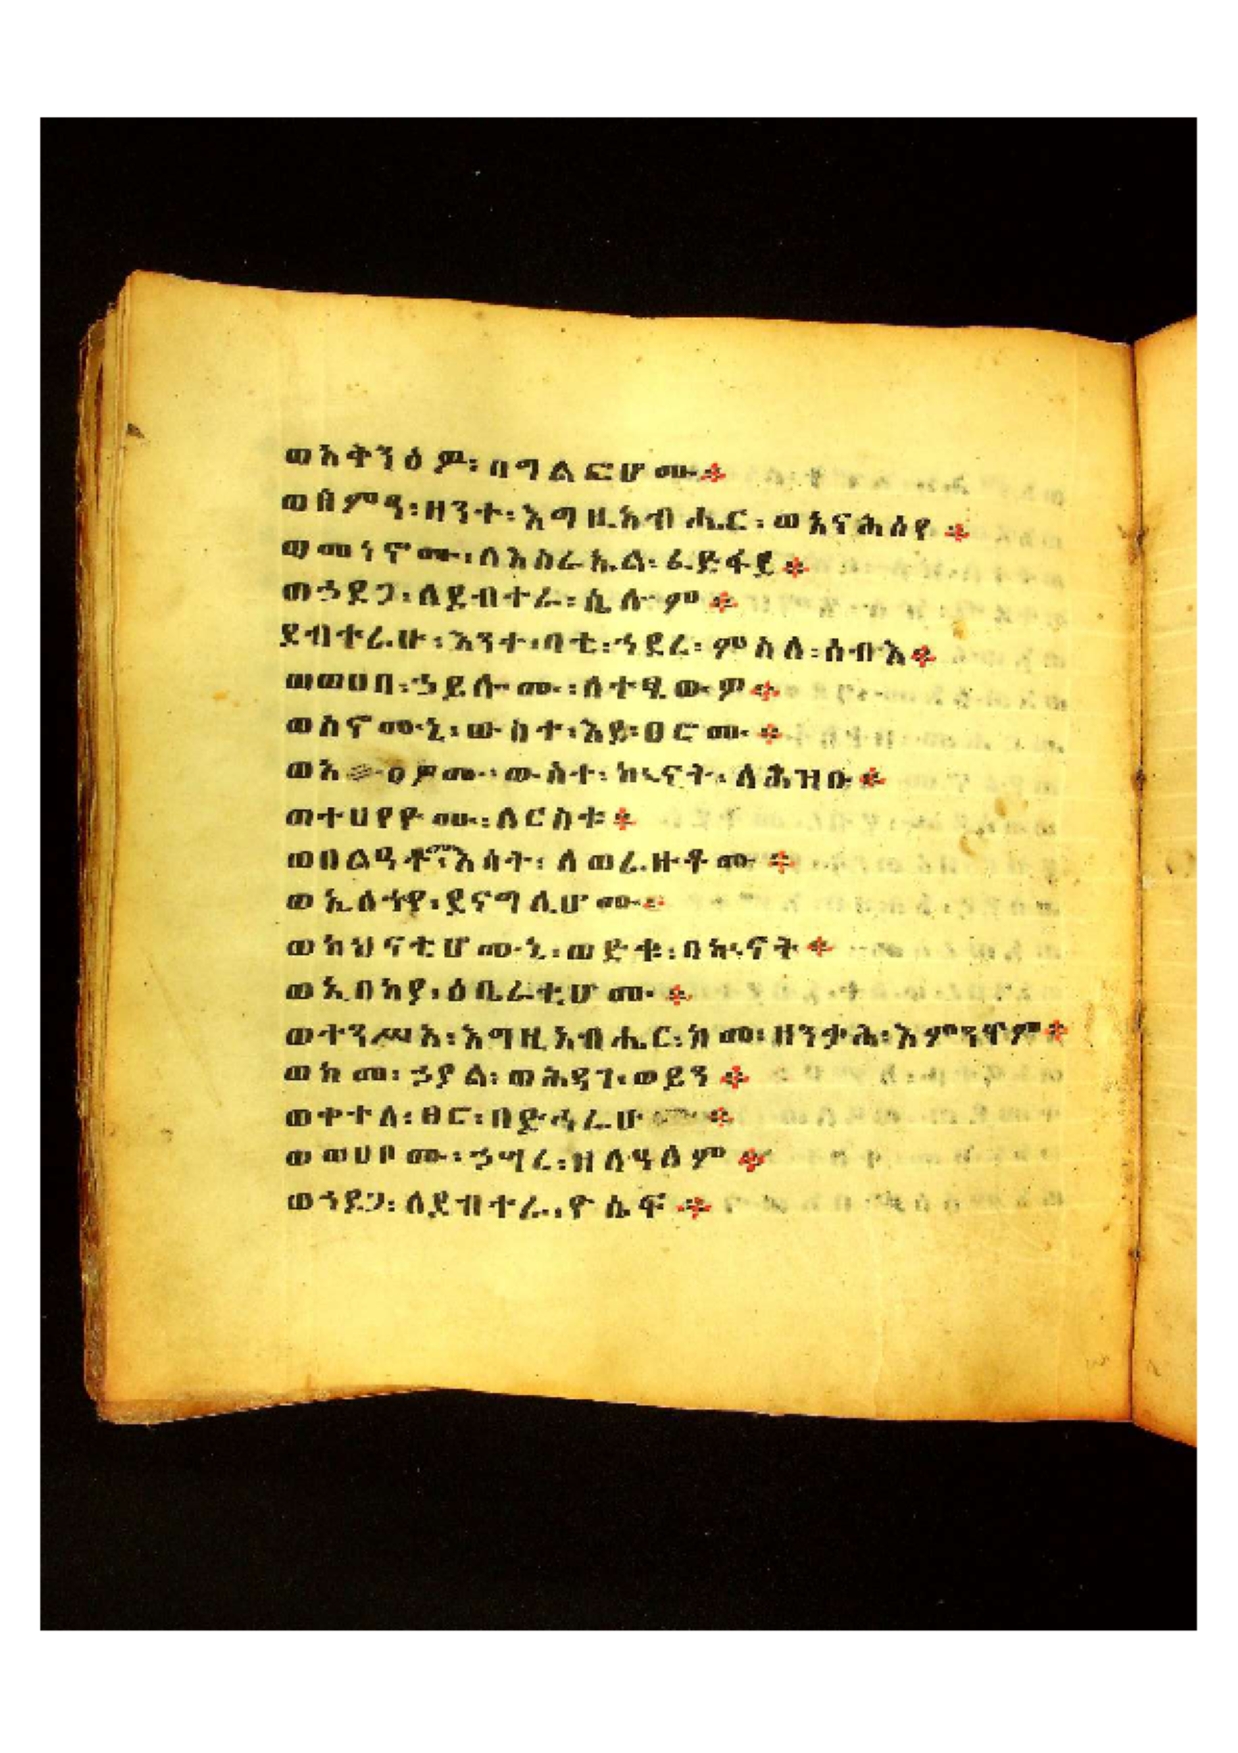 ወአቅንዕዎ፡ በግልፎሆሙ፨
ወሰምዓ፡ ዘንተ፡ እግዚአብሔር፡ ወአናሕሰየ፨
ወመነኖሙ፡ ለእስራኤል፡ ፈድፋደ፨
ወኃደጋ፡ ለደብተራ፡ ሴሎም፨
ደብተራሁ፡ እንተ፡ ባቲ፡ ኀደረ፡ ምስለ፡ ሰብእ፨
ወወሀበ፡ ኃይሎሙ፡ ለተፄውዎ፨
ወስኖሙኒ፡ ውስተ፡ እደ፡ ፀሮሙ፨
ውስተ፡ ኵናት፡ ለሕዝቡ፨
ወተሀየዮሙ፡ ለርስቱ፨
ወበልዓቶሙ፡ እሳት፡ ለወራዙቶሙ፨
ወኢለሐያ፡ ደናግሊሆሙ፨
ወካህናቲሆሙኒ፡ ወድቁ፡ በኵናት፨
ወኢበካያ፡ ዕቤራቲሆሙ፨
ወተንሥአ፡ እግዚአብሔር፡ ከመ፡ ዘንቃሕ፡ እምንዋም፨
ወከመ፡ ኃያል፡ ወሕዳገ፡ ወይን፨
ወቀተለ፡ ፀሮ፡ በድኅሬሁ፨
ወወሀቦሙ፡ ኃሣረ፡ ዘለዓለም፨
ወኀደጋ፡ ለደብተራ፡ ዮሴፍ፨